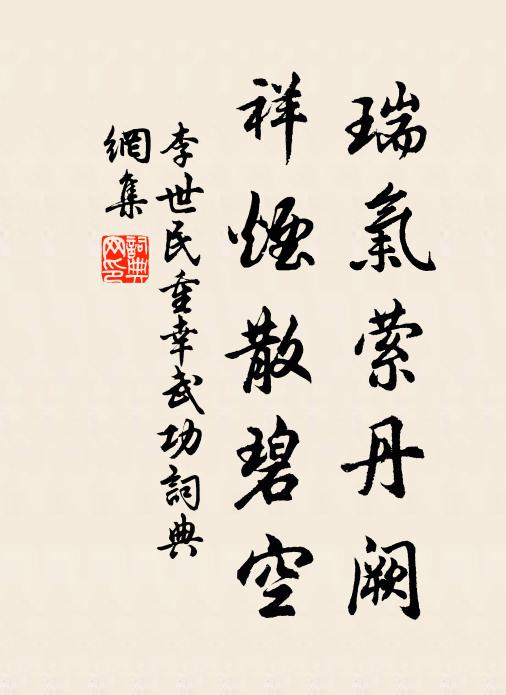 瑞氣萦丹阙
祥煙散碧空
李世民重幸武功詞典
網集
詞典
网印